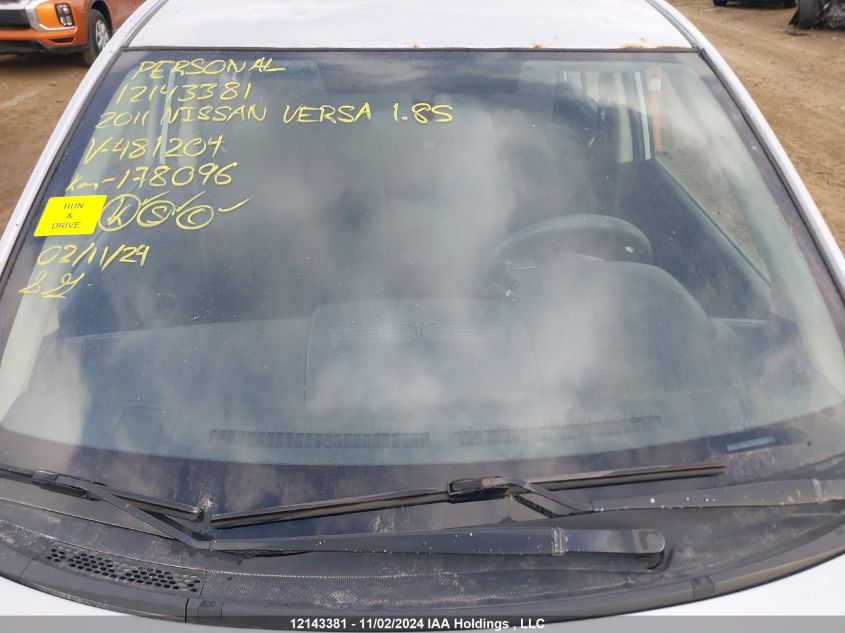 PERSONAL
12143381
2011 NISSAN VERSA 1.8S
V-481204
Km-178096
RUN
&
DRIVE
02/11/24
12143381 - 11/02/2024 IAA Holdings , LLC